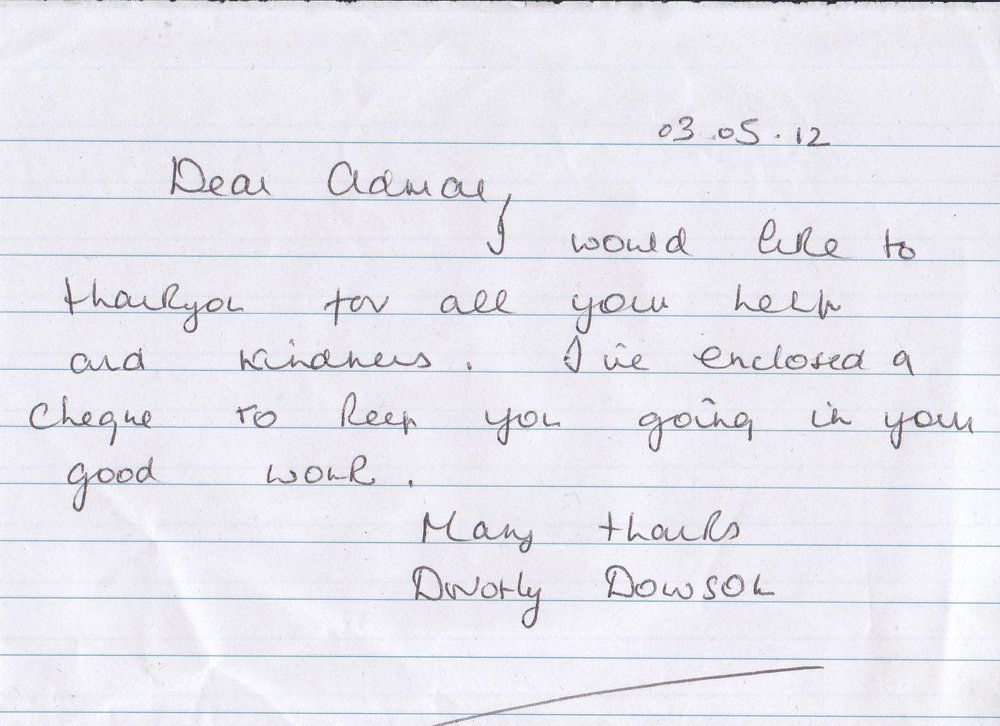 03.05.12
Dear Adman,
I would like to
thankyou for all your help
and kindness. I've enclosed a
cheque to keep you going in your
good work.
Many thanks
Dorothy Dowson